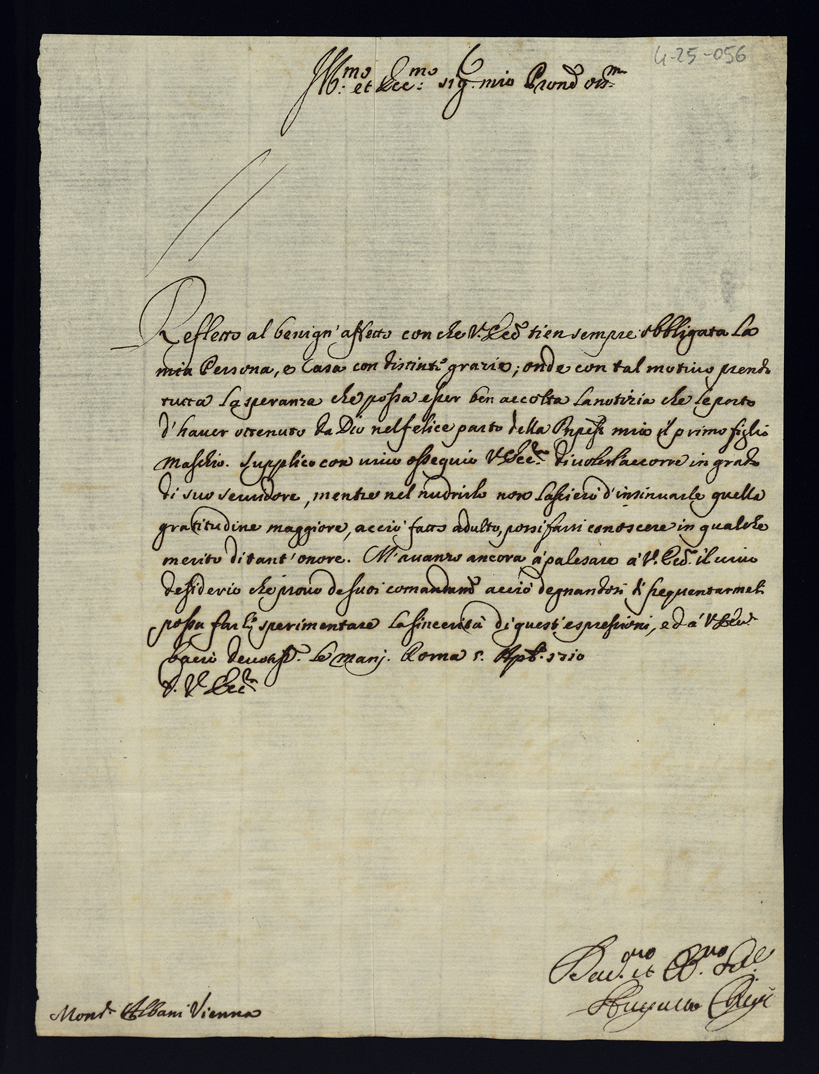 4-25-056
Ill:mo et Ecc:mo Sig: mio Pron̄e Oss:mo
Reflesso al benign'affetto con che V. Ecc̄ tien sempre obbligata la
mia Persona, e Casa con distinte grazie; onde con tal motivo prendo
tutta la speranza che possa esser ben accolta la notizia che le porto
d'haver ottenuto da Dio nel felice parto della mio il primo figlio
Maschio. Supplico con vivo ossequio V. Ecc:za di volerl'accorre in grado
di suo servidore, mentre nel nudrirlo non lascierò d'insinuarle quella
gratitudine maggiore, acciò fatto adulto, possi farsi conoscere in qualche
merito di tant'onore. M'avanzo ancora à palesare à V. Ecc̄ il vivo
desiderio che provo de suoi comandam̄ acciò degnandosi di frequentarmeli
possa farle sperimentare la sincerità di quest'espressioni, ed à V. Ecc:za
bacio devotiss:te le mani. Roma 5. Aple 1710
D. V. Ecc:za
Dev:mo et Obb:mo
Augusto Chigi
Mons:r Albani Vienna